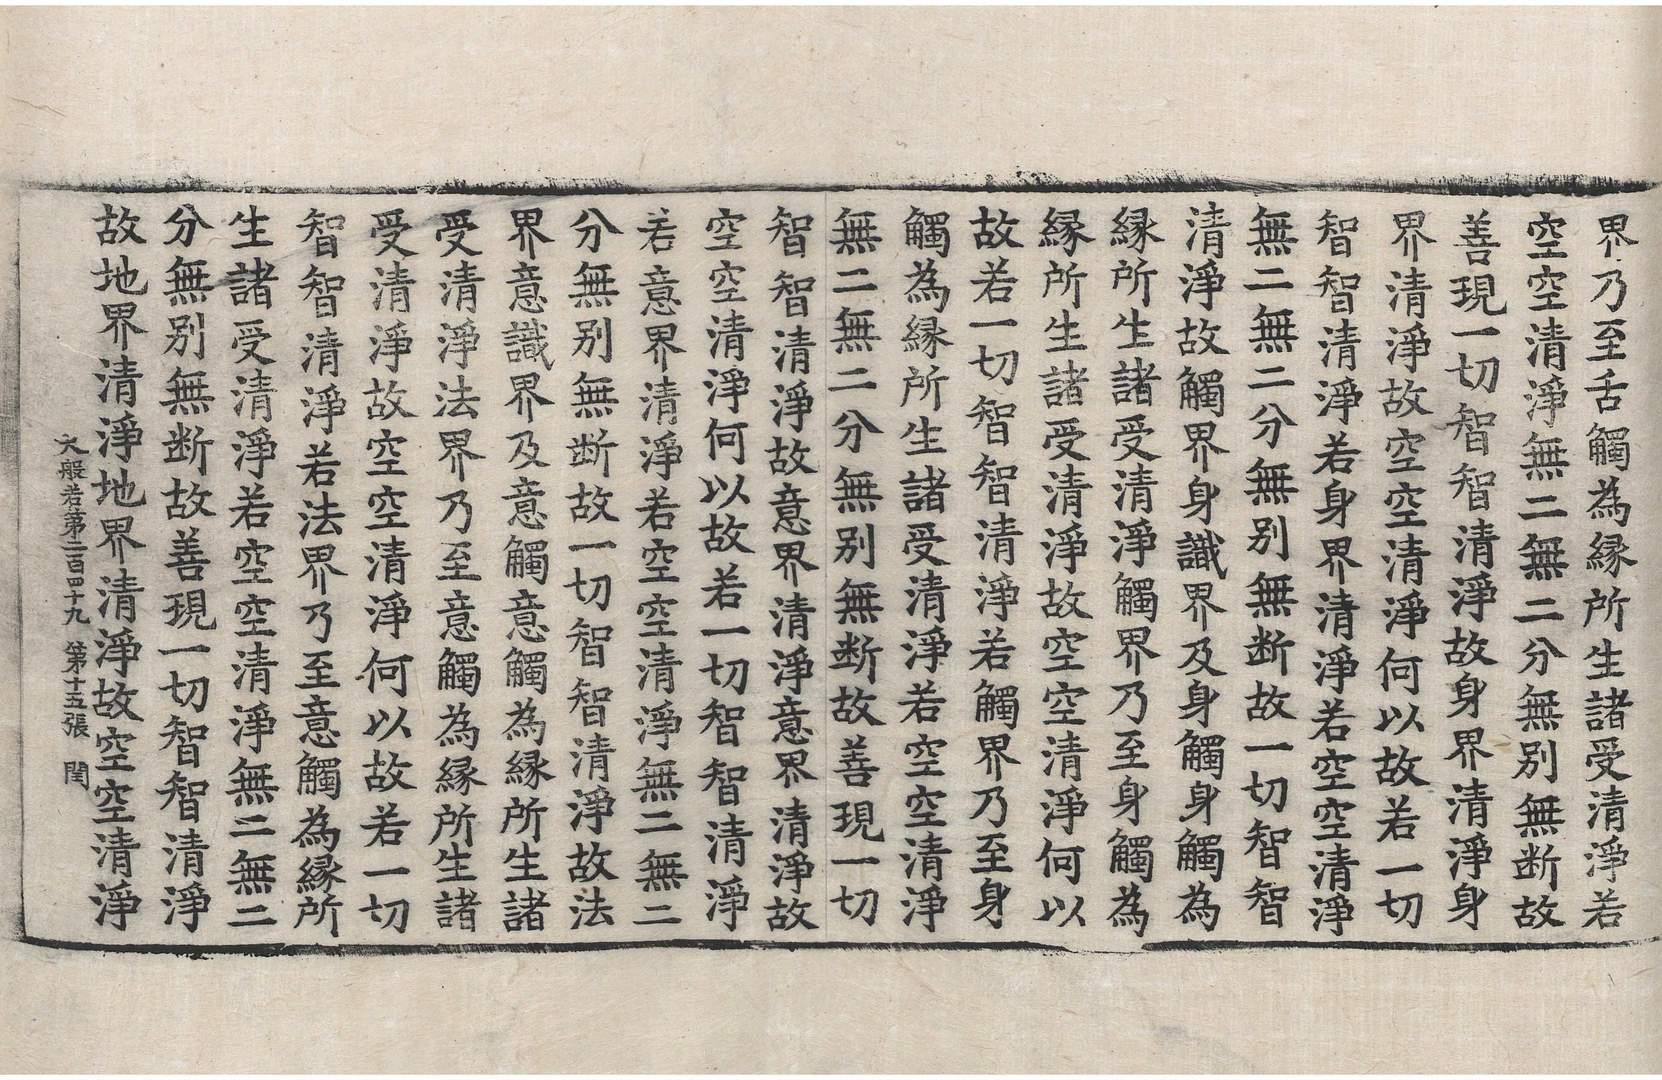 界乃至舌觸為縁所生諸受清淨若
空空清淨無二無二分無別無断故
善現一切智智清淨故身界清淨身
界清淨故空空清淨何以故若一切
智智清淨若身界清淨若空空清淨
無二無二分無別無断故一切智智
清淨故觸界身識界及身觸身觸為
縁所生諸受清淨觸界乃至身觸為
縁所生諸受清淨故空空清淨何以
故若一切智智清淨若觸界乃至身
觸為縁所生諸受清淨若空空清淨
無二無二分無別無断故善現一切
智智清淨故意界清淨意界清淨故
空空清淨何以故若一切智智清淨
若意界清淨若空空清淨無二無二
分無別無断故一切智智清淨故法
界意識界及意觸意觸為縁所生諸
受清淨法界乃至意觸為縁所生諸
受清淨故空空清淨何以故若一切
智智清淨若法界乃至意觸為縁所
生諸受清淨若空空清淨無二無二
分無別無断故善現一切智智清淨
故地界清淨地界清淨故空空清淨
大般若第二百四十九 第十五張 閏